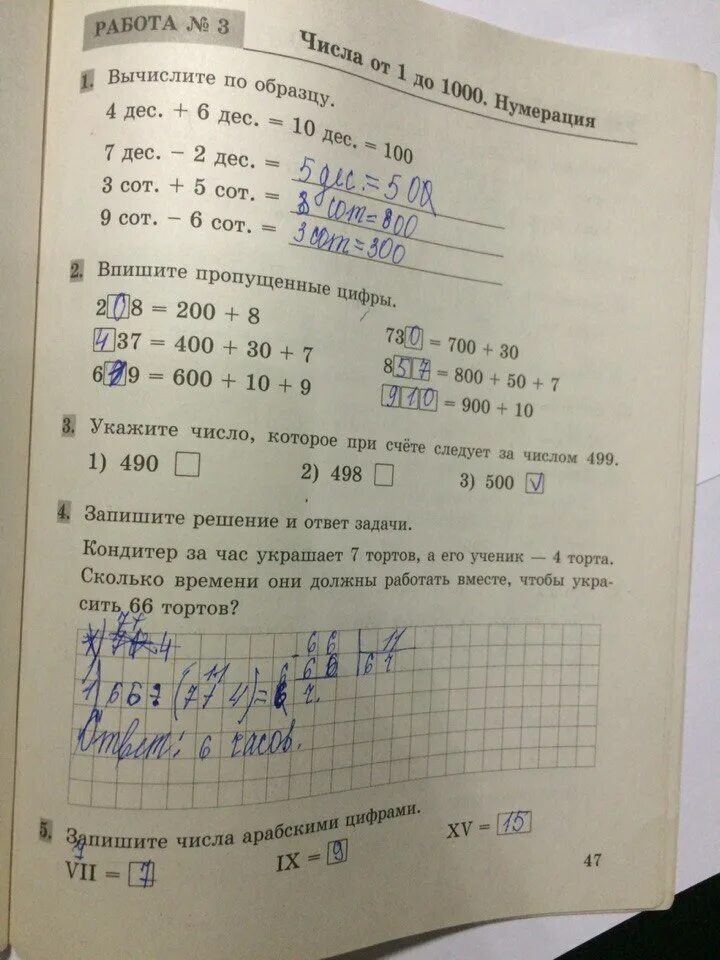 РАБОТА № 3
Числа от 1 до 1000. Нумерация
1. Вычислите по образцу.
4 дес. + 6 дес. = 10 дес. = 100
7 дес. − 2 дес. = 5 дес. = 500
3 сот. + 5 сот. = 8 сот = 800
9 сот. − 6 сот. = 3 сот = 300
2. Впишите пропущенные цифры.
208 = 200 + 8
730 = 700 + 30
437 = 400 + 30 + 7
857 = 800 + 50 + 7
619 = 600 + 10 + 9
910 = 900 + 10
3. Укажите число, которое при счёте следует за числом 499.
1) 490 2) 498 3) 500 √
4. Запишите решение и ответ задачи.
Кондитер за час украшает 7 тортов, а его ученик — 4 торта.
Сколько времени они должны работать вместе, чтобы укра-
сить 66 тортов?
66 11
66 6
1) 66: (7+4)=6 ч.
11
Ответ: 6 часов.
5. Запишите числа арабскими цифрами.
VII = 7 IX = 9 XV = 15
47